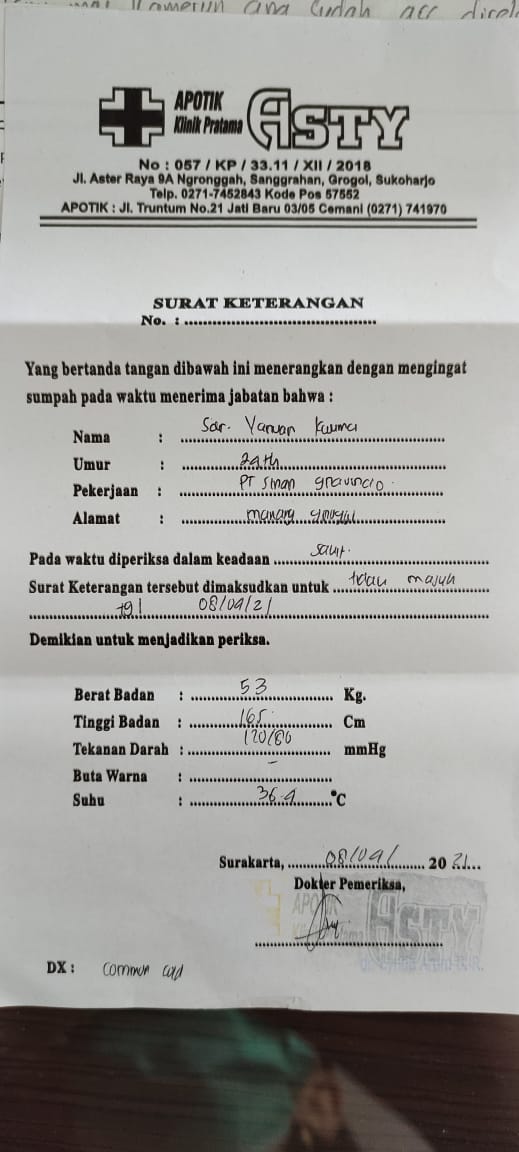 APOTIK
Klinik Pratama ASTY
No : 057 / KP / 33.11 / XII / 2018
Jl. Aster Raya 9A Ngronggah, Sanggrahan, Grogol, Sukoharjo
Telp. 0271-7452843 Kode Pos 57552
APOTIK : Jl. Truntum No.21 Jati Baru 03/05 Cemani (0271) 741970
SURAT KETERANGAN
No. :
Yang bertanda tangan dibawah ini menerangkan dengan mengingat
sumpah pada waktu menerima jabatan bahwa :
Nama : Sdr. Yanuar
Umur :
Pekerjaan : PT
Alamat :
Pada waktu diperiksa dalam keadaan
Surat Keterangan tersebut dimaksudkan untuk
tgl 08/09/21
Demikian untuk menjadikan periksa.
Berat Badan : 53 Kg.
Tinggi Badan : 165 Cm
Tekanan Darah : 120/80 mmHg
Buta Warna : -
Suhu : 36.4 °C
Surakarta, 08/09/ 20 21
Dokter Pemeriksa,
APOTIK
ASTY
DX : common cold